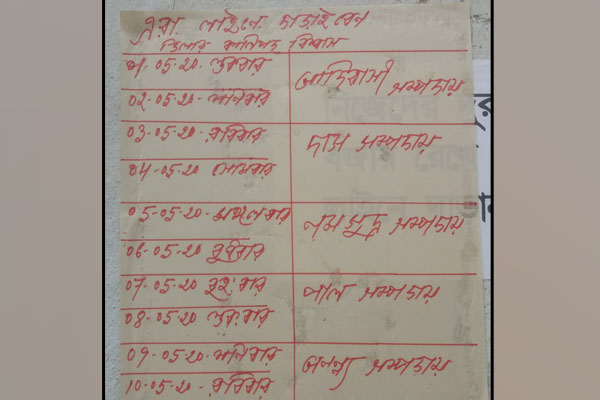 এরা লাইনে দাড়াইবেন
বিশ্বাস
01-05-20 শুক্রবার
আদিবাসী সম্প্রদায়
02-05-20-শনিবার
03-05-20-রবিবার
দাস সম্প্রদায়
04-05-20 সোমবার
05-05-20-মঙ্গলবার
নমশুদ্র সম্প্রদায়
06-05-20 বুধবার
07-05-20 বৃহ:বার
পাল সম্প্রদায়
08-05-20 শুক্রবার
09-05-20-শনিবার
অনন্য সম্প্রদায়
10-05-20-রবিবার
নিজেদের
বজায় রেখে